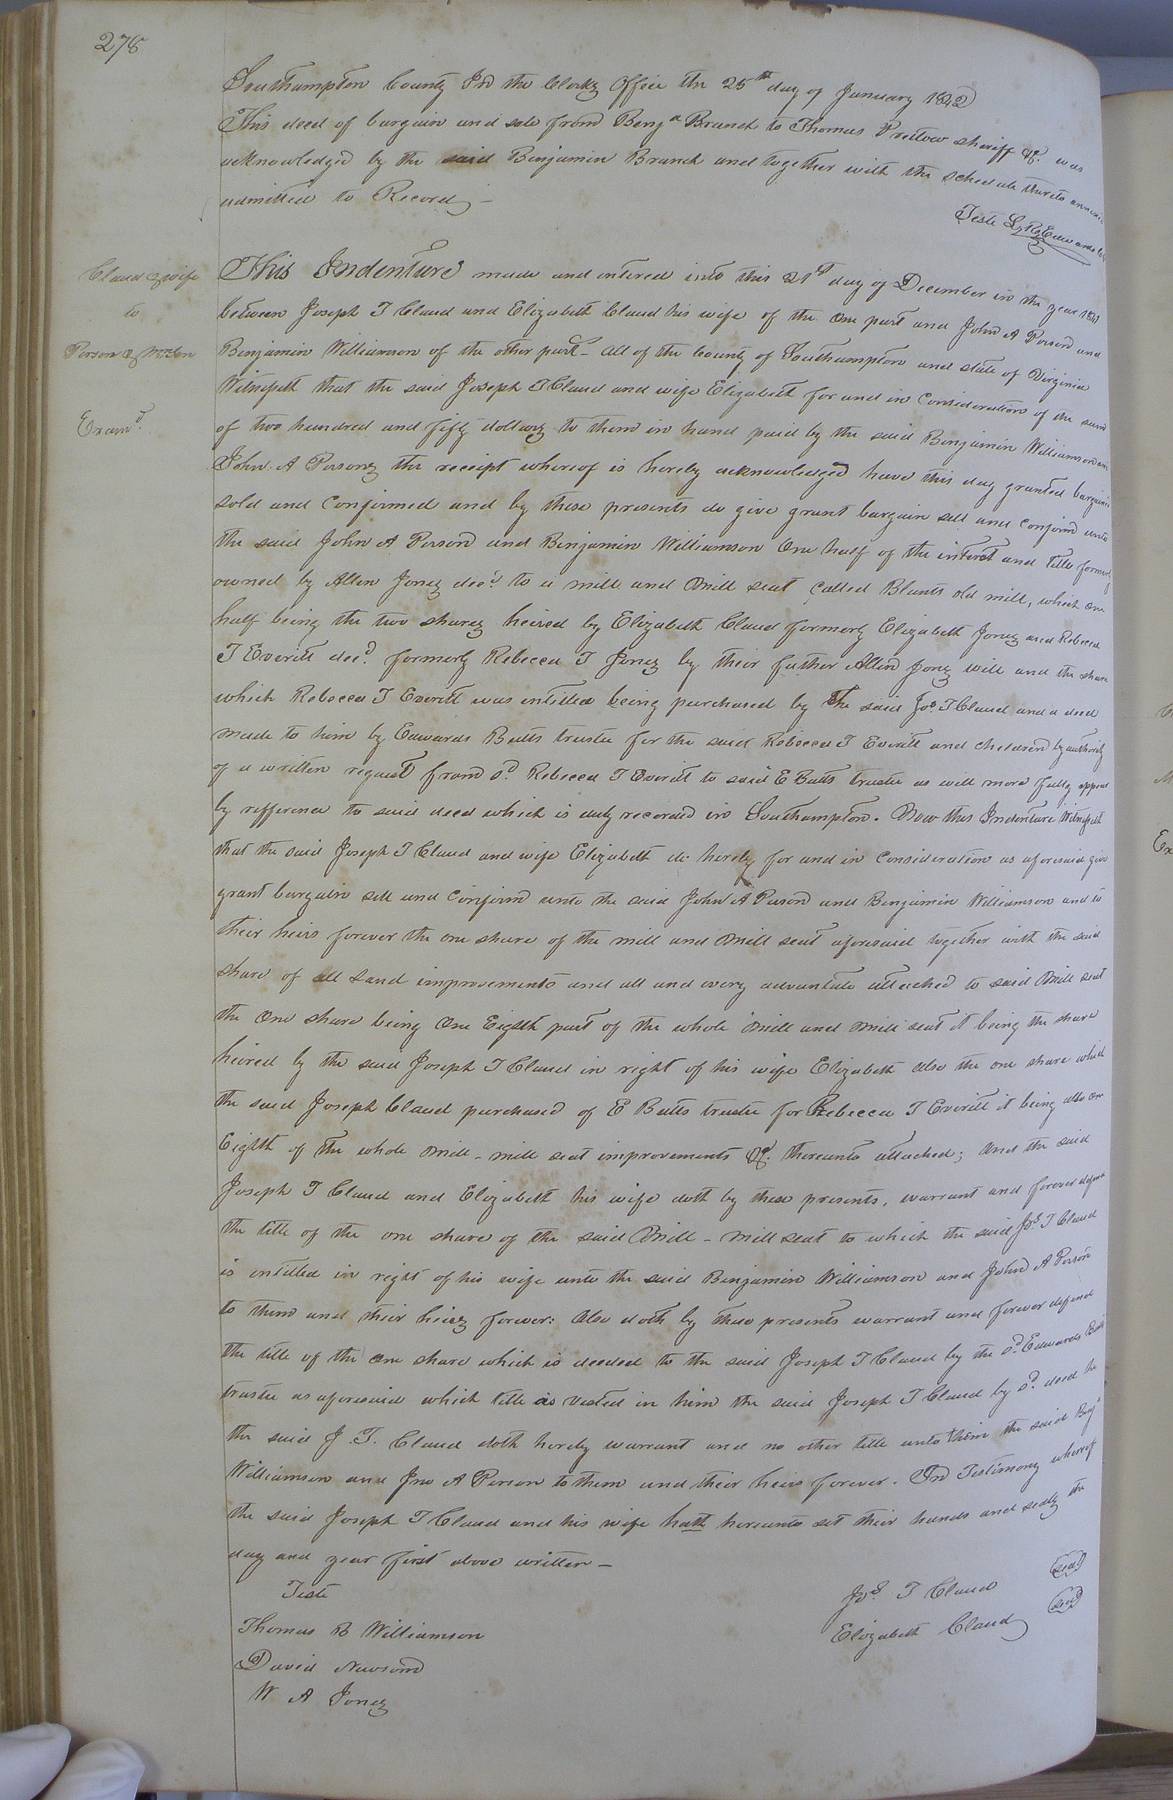 278
Southampton County In the Clerks Office the 25th day of January 1842
This deed of bargain and sale from Benja Branch to Thomas Pretlow sheriff &c. was
acknowledged by the said Benjamin Branch and together with the schedule thereto annexed
admitted to Record –
Teste L. R. Edwards
Claud & wife
to
Person &
Examd.
This Indenture made and entered into this 21st day of December in the year 1841
between Joseph T Claud and Elizabeth Claud his wife of the one part and John A Person and
Benjamin Williamson of the other part – all of the County of Southampton and state of Virginia
Witnesseth that the said Joseph T Claud and wife Elizabeth for and in Consideration of the sum
of two hundred and fifty dollars to them in hand paid by the said Benjamin Williamson and
John. A Persons the receipt whereof is hereby acknowledged have this day granted bargained
sold and Confirmed and by these presents do give grant bargain sell and Confirm unto
the said John A Person and Benjamin Williamson One half of the interest and title formerly
owned by Allen Jones decd to a mill and Mill seat Called Blunts old mill, which one
half being the two shares heired by Elizabeth Claud formerly Elizabeth Jones and Rebecca
T Everitt decd. formerly Rebecca T Jones by their father Allen Jones will and the share
which Rebecca T Everitt was intitled being purchased by the said Jos. T Claud and a deed
made to him by Edwards Butts trustee for the said Rebecca T Everitt and children by authority
of a written request from sd. Rebecca T Everitt to said E Butts trustee as will more fully appear
by refference to said deed which is duly recorded in Southampton. Now this Indenture Witnesseth
that the said Joseph T Claud and wife Elizabeth do hereby for and in Consideration as aforesaid give
grant bargain sell and Confirm unto the said John A Person and Benjamin Williamson and to
their heirs forever the one share of the mill and Mill seat aforesaid together with the said
share of all Land improvements and all and every advantate attached to said Mill seat
the One share being One Eighth part of the whole Mill and Mill seat it being the share
heired by the said Joseph T Claud in right of his wife Elizabeth also the one share which
the said Joseph Claud purchased of E Butts trustee for Rebecca T Everitt it being also one
Eighth of the whole Mill – mill seat improvements &c. thereunto attached; And the said
Joseph T Claud and Elizabeth his wife doth by these presents, warrant and forever defend
the title of the one share of the said Mill – mill seat to which the said Jos. T Claud
is intitled in right of his wife unto the said Benjamin Williamson and John A Person
to them and their heirs forever: Also doth by these presents warrant and forever defend
the title of the one share which is deeded to the said Joseph T Claud by the sd. Edwards Butts
trustee as aforesaid which title is vested in him the said Joseph T Claud by sd. deed he
the said J. T. Claud doth hereby warrant and no other title unto them the said Benj
Williamson and Jno A Person to them and their heirs forever. In Testimony whereof
the said Joseph T Claud and his wife hath hereunto set their hands and seals the
day and year first above written –
Teste
Jos. T Claud seal
Thomas B Williamson
Elizabeth Claud seal
David Newsom
W A Jones